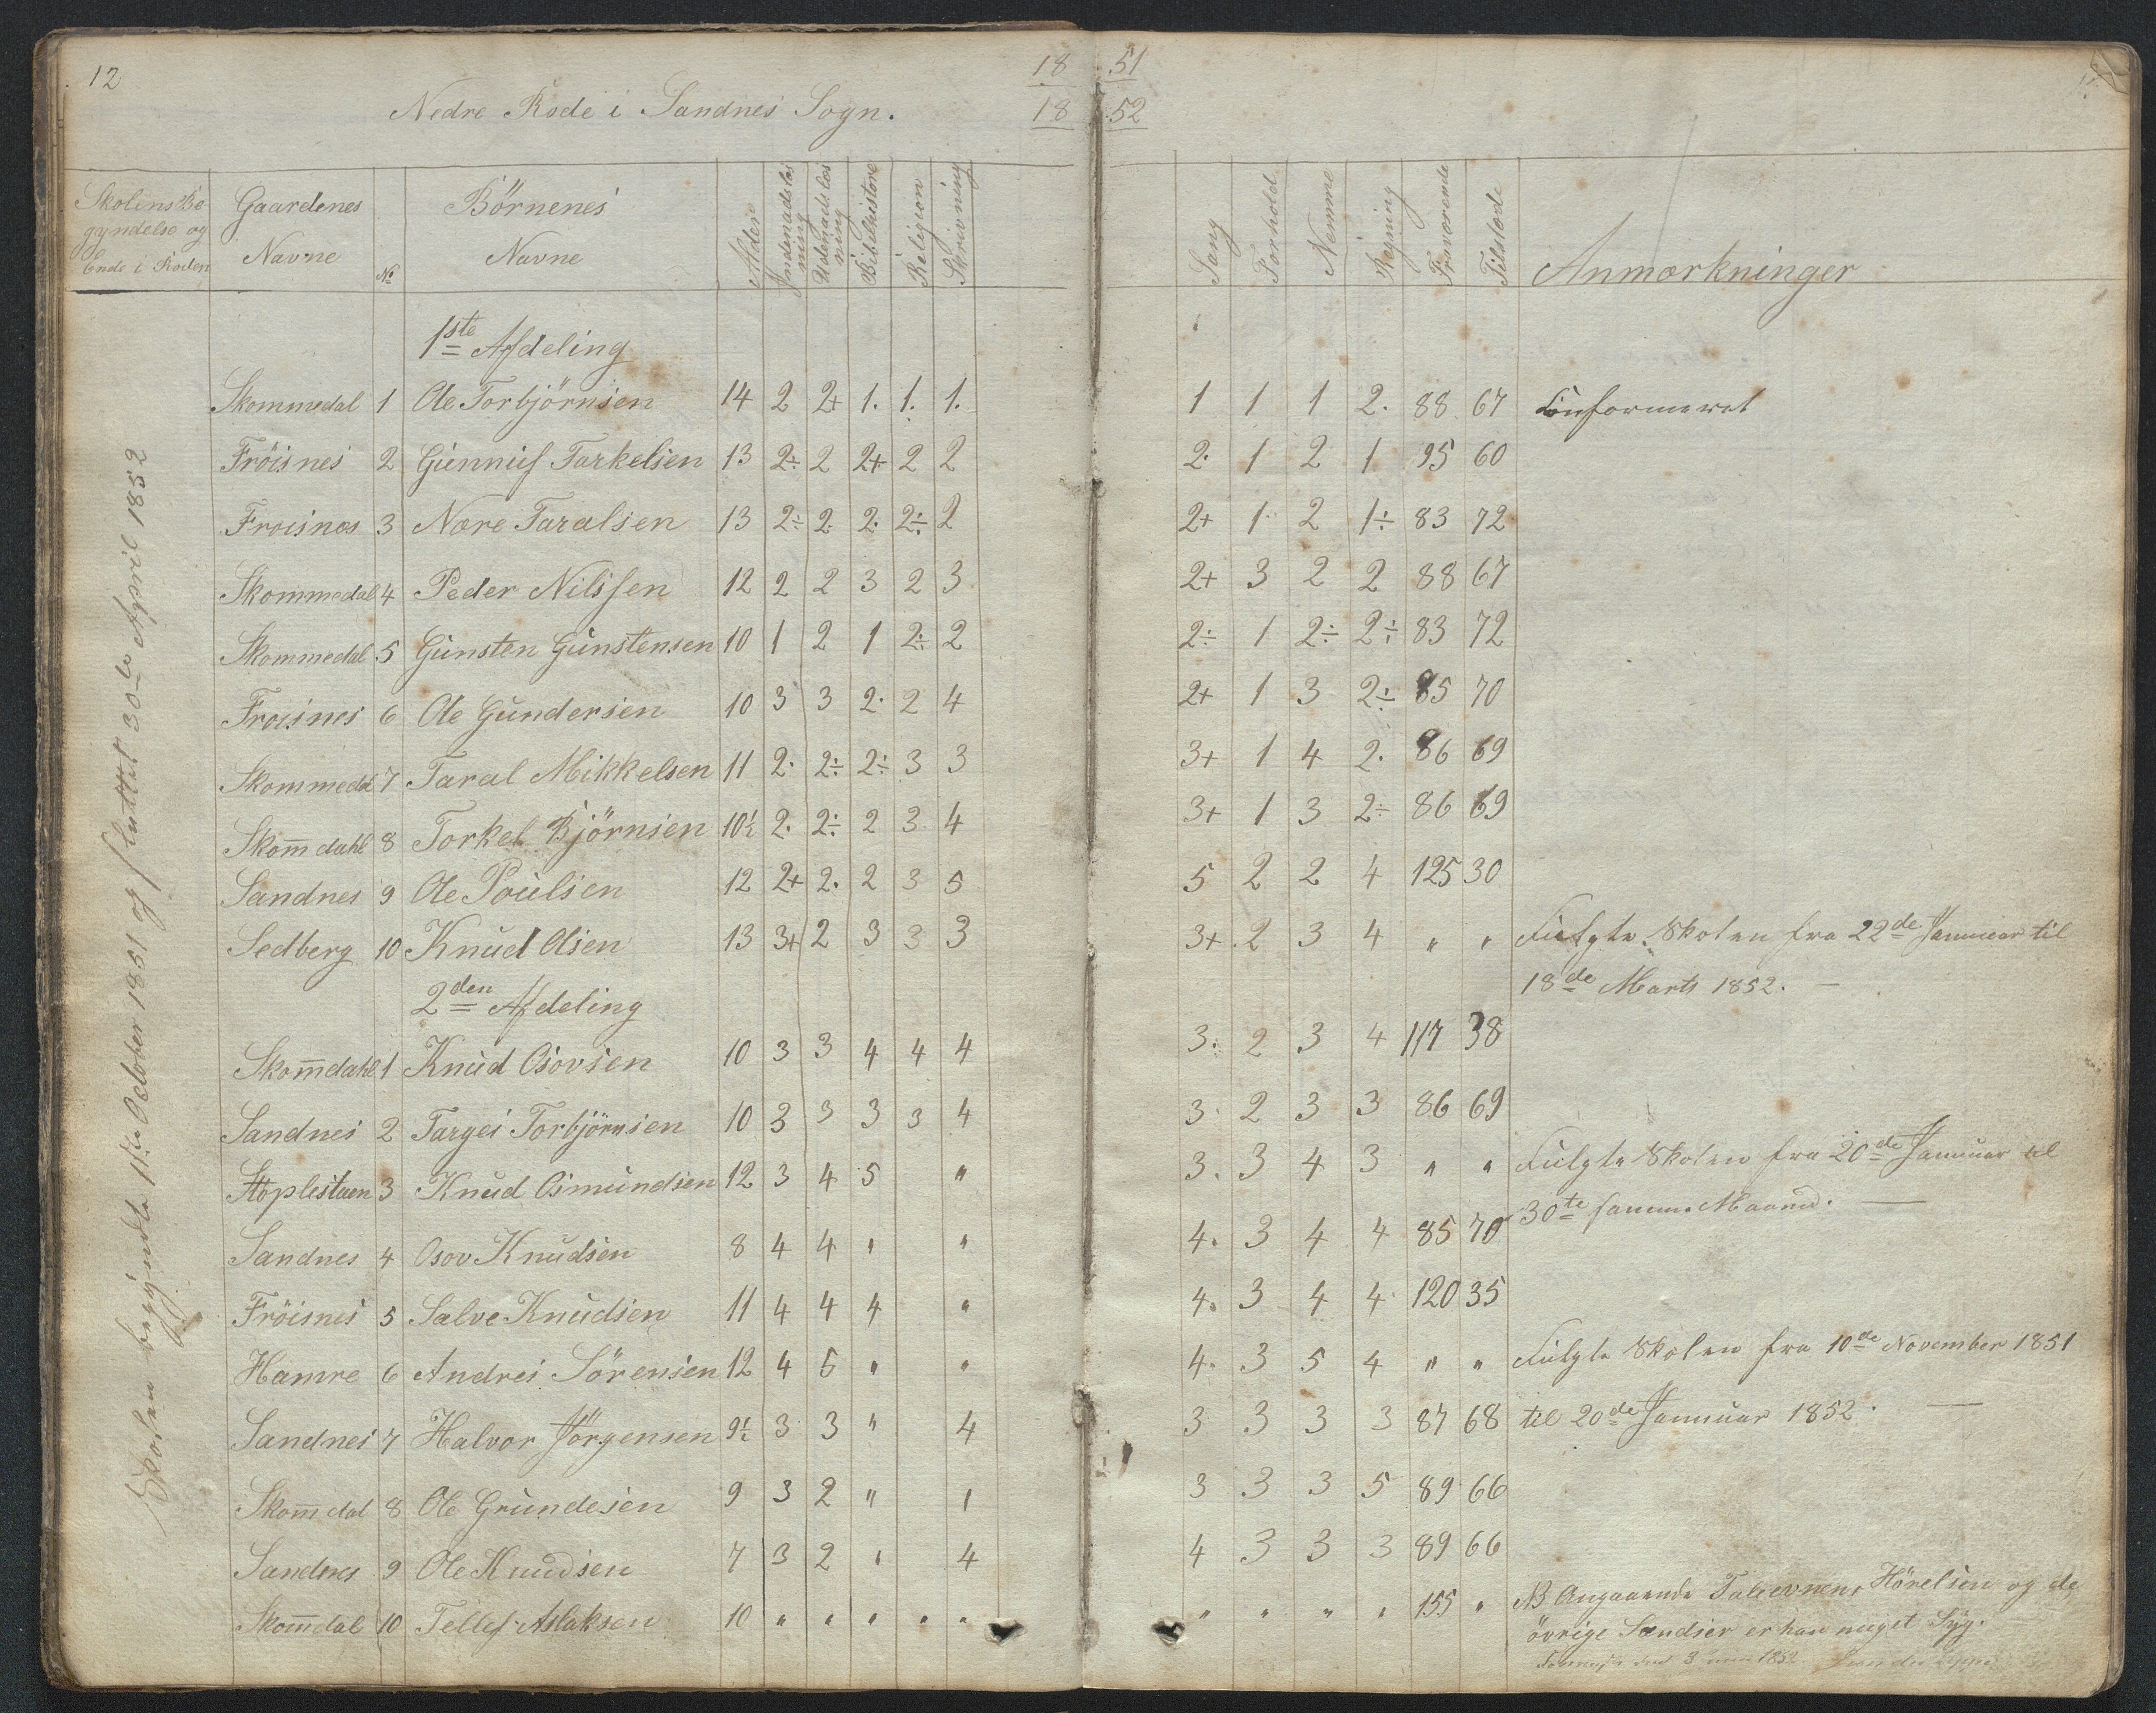 12
18 51
18 52
Nedre Rode i Sandnes Sogn.
Skolens Be gyndelse og Ende i Roden | Gaardenes Navne | No | Börnenes Navne | Alder | Indenadsläs ning | Udenads läs ning | Bibelhistorie | Religion | Skrivning | Sang | Forhold | Nemme | Regning | Fraværende | Tilstæde | Anmærkninger
Skolen begyndte 11te October 1851 og sluttet 30te April 1852
1ste Afdeling
Skommedal 1 Ole Torbjörnsen 14 2 2+ 1. 1. 1. 1 1 1 2. 88 67 Confirmeret
Fröisnes 2 Gunnuf Tarkelsen 13 2÷ 2 2+ 2 2 2. 1 2 1 95 60
Froisnes 3 Nære Taralsen 13 2÷ 2. 2. 2÷ 2 2+ 1 2 1÷ 83 72
Skommedal 4 Peder Nilssen 12 2 2 3 2 3 2+ 3 2 2 88 67
Skommedal 5 Gunsten Gunstensen 10 1 2 1 2÷ 2 2÷ 1 2÷ 2÷ 83 72
Froisnes 6 Ole Gundersen 10 3 3 2. 2 4 2+ 1 3 2÷ 85 70
Skommedal 7 Taral Mikkelsen 11 2. 2÷ 2÷ 3 3 3+ 1 4 2. 86 69
Skom̅dahl 8 Torkel Björnsen 10½ 2. 2÷ 2 3 4 3+ 1 3 2÷ 86 69
Sandnes 9 Ole Poulsen 12 2+ 2. 2 3 5 5 2 2 4 125 30
Sedberg 10 Knud Olsen 13 3+ 2 3 3 3 3+ 2 3 4 " " Fulgte Skolen fra 22de Januar til
18de Marts 1852. —
2den Afdeling
Skom̅dahl 1 Knud Osovsen 10 3 3 4 4 4 3. 2 3 4 117 38
Sandnes 2 Targei Torbjörnsen 10 3 3 3 3 4 3. 2 3 3 86 69
Stoplestuen 3 Knud Osmundsen 12 3 4 5 " 3. 3 4 3 " " Fulgte Skolen fra 20de Januar til
30te samme Maaned. —
Sandnes 4 Osov Knudsen 8 4 4 " " 4. 3 4 4 85 70
Fröisnes 5 Salve Knudsen 11 4 4 4 " 4. 3 4 4 120 35
Hamre 6 Andres Sörensen 12 4 5 " " 4. 3 5 4 " " Fulgte Skolen fra 10de November 1851
til 20de Januar 1852. —
Sandnes 7 Halvor Jörgensen 9½ 3 3 " 4 3 3 3 3 87 68
Skom̅dal 8 Ole Grundesen 9 3 2 " 1 3 3 3 5 89 66
Sandnes 9 Ole Knudsen 7 3 2 " 4 4 3 3 3 89 66
Skom̅dal 10 Tellef Aslaksen 10 " " " " " " " " " 155 " NB Angaaende Taleevnen, Hörelsen og de
övrige Sandser er han meget Syg.
den 3 1852